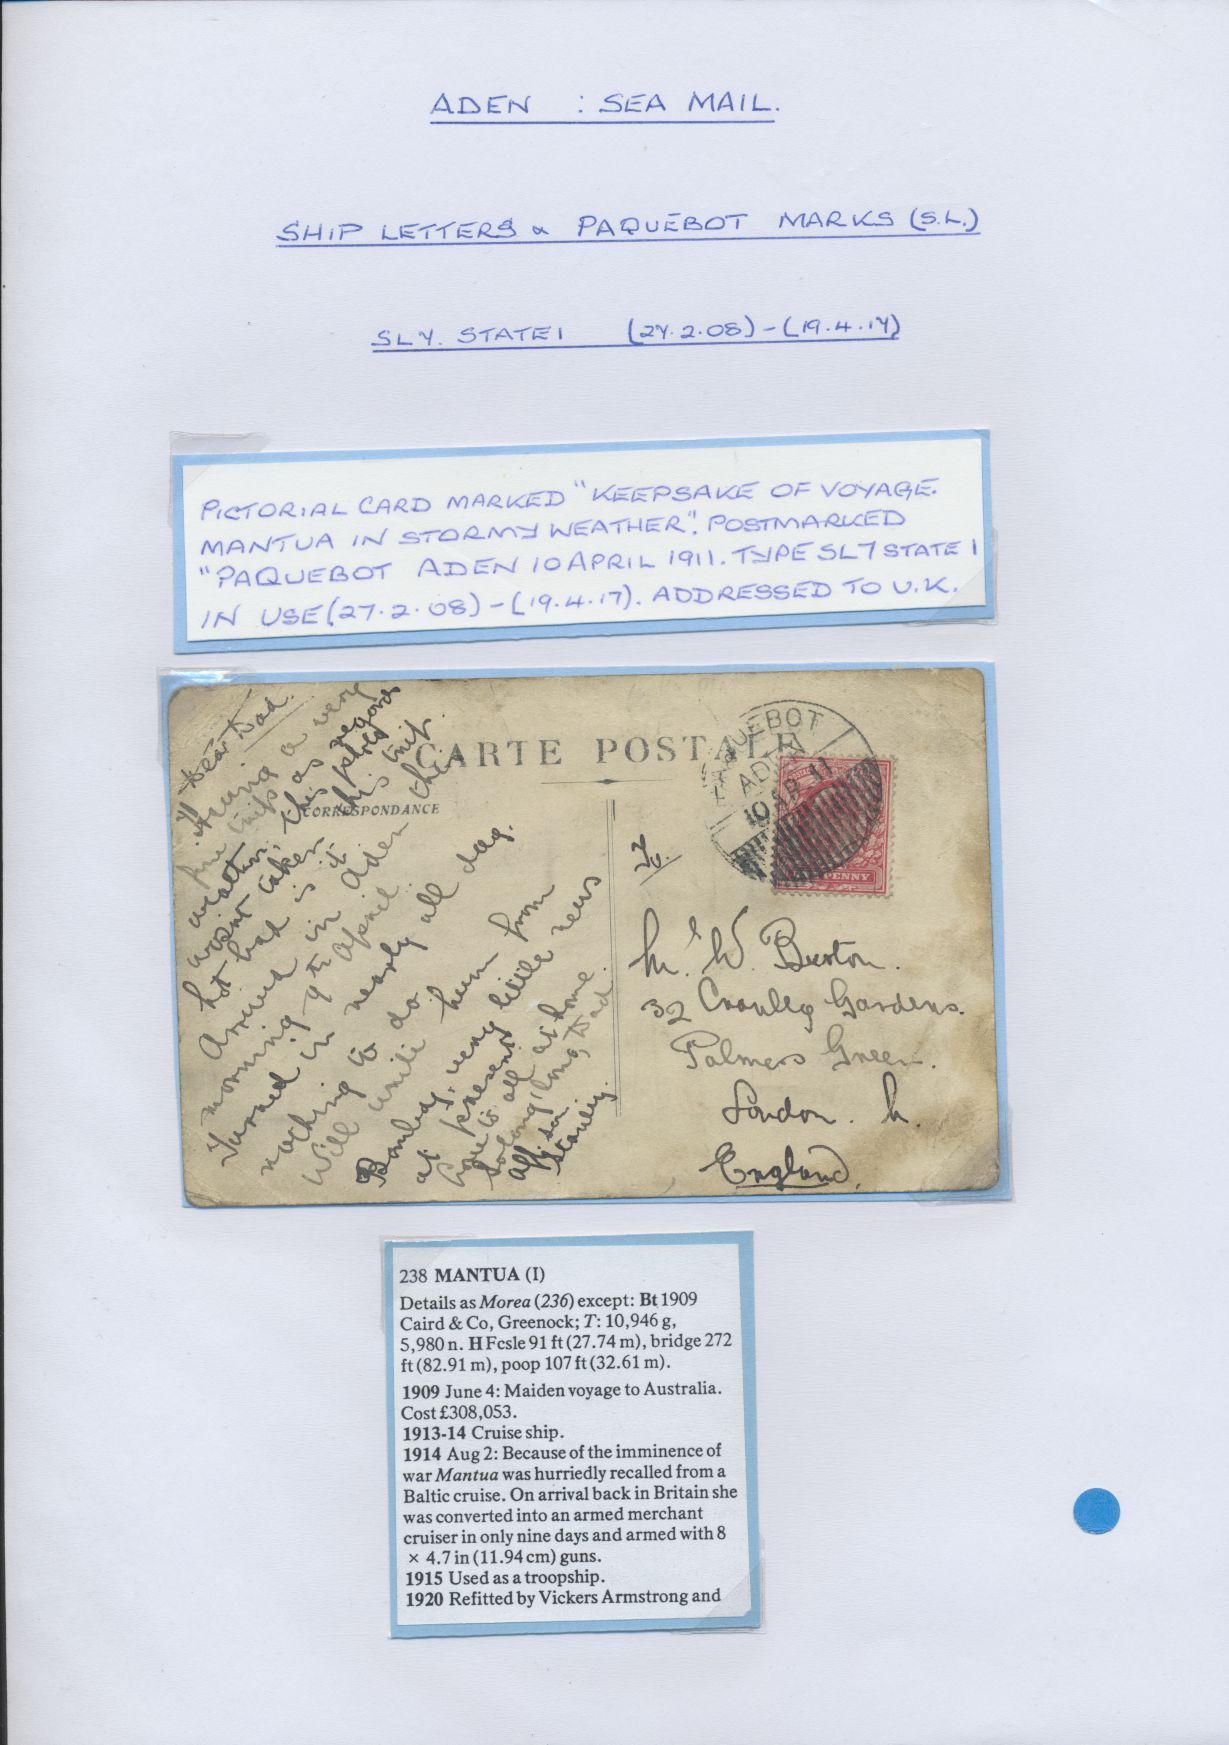 ADEN : SEA MAIL.
SHIP LETTERS & PAQUEBOT MARKS (S.L.)
SL7. STATE 1 (27.2.08) - (19.4.17)
PICTORIAL CARD MARKED "KEEPSAKE OF VOYAGE.
MANTUA IN STORMY WEATHER". POSTMARKED
"PAQUEBOT ADEN 10 APRIL 1911. TYPE SL7 STATE 1
IN USE (27.2.08) - (19.4.17). ADDRESSED TO U.K.
CARTE POSTALE
CORRESPONDANCE
Dear Dad.
Having a very
fine trip as regards
weather, this photo
wasnt taken this trip.
hot bad is it
Arrived in Aden this
morning 9th April.
Turned in nearly all day.
nothing to do
Will write from
Bombay, very little news
at present
love to all at home
So long, Dad.
Aff. Son
Stanley.
PAQUEBOT
ADEN
10 AP 11
PENNY
Mr. W. Burton.
32 Cranley Gardens.
Palmers Green.
London. N.
England.
238 MANTUA (I)
Details as Morea (236) except: Bt 1909
Caird & Co, Greenock; T: 10,946 g,
5,980 n. H Fcsle 91 ft (27.74 m), bridge 272
ft (82.91 m), poop 107 ft (32.61 m).
1909 June 4: Maiden voyage to Australia.
Cost £308,053.
1913-14 Cruise ship.
1914 Aug 2: Because of the imminence of
war Mantua was hurriedly recalled from a
Baltic cruise. On arrival back in Britain she
was converted into an armed merchant
cruiser in only nine days and armed with 8
× 4.7 in (11.94 cm) guns.
1915 Used as a troopship.
1920 Refitted by Vickers Armstrong and